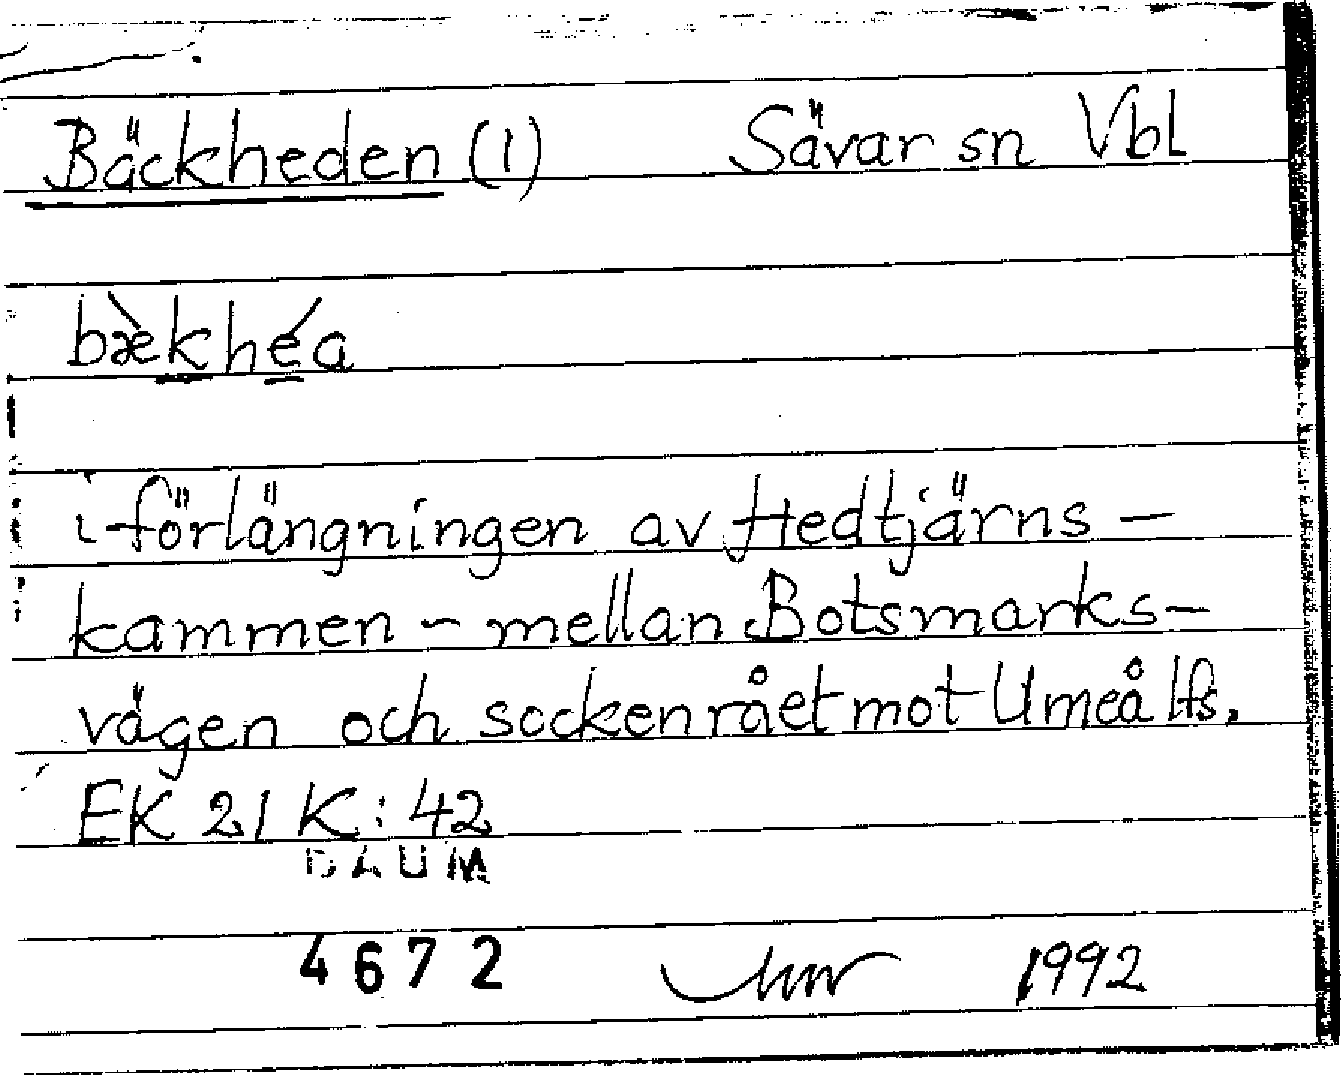 Bäckheden (1) Sävar sn Vbl
bæ̀khéa
i förlängningen av Hedtjärns-
kammen - mellan Botsmarks-
vägen och sockenrået mot Umeå lfs.
EK 21 K: 42
DAUM
4672 1992